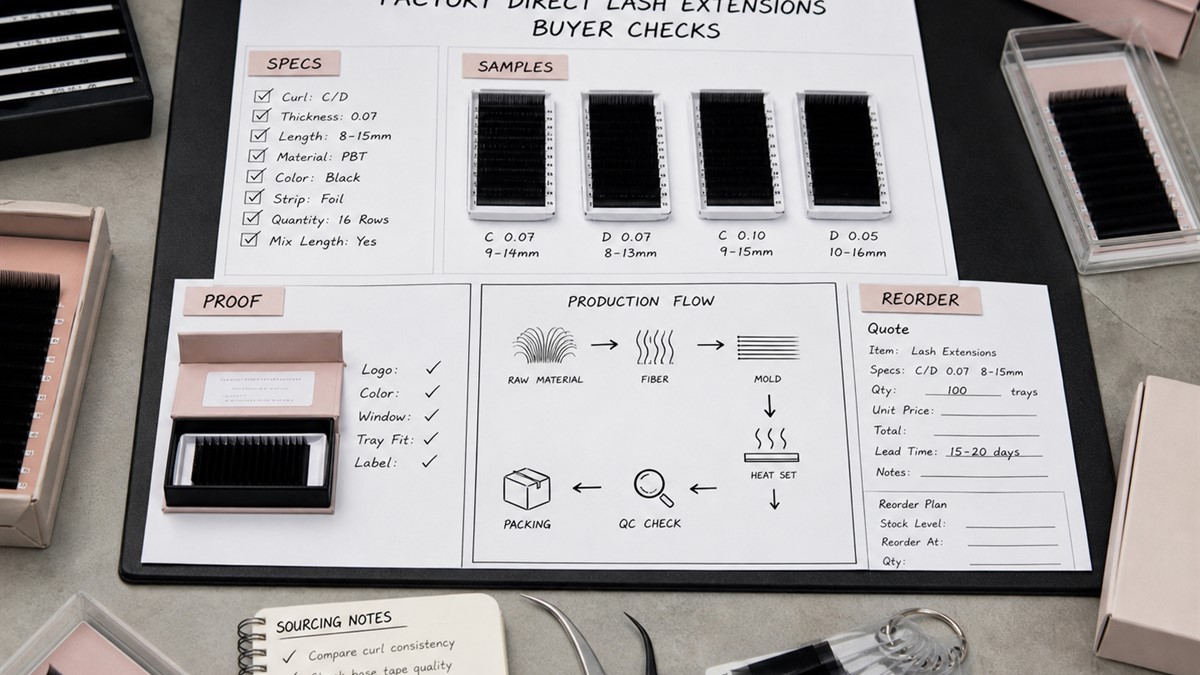 FACTORY DIRECT LASH EXTENSIONS
BUYER CHECKS
SPECS
Curl: C/D
Thickness: 0.07
Length: 8-15mm
Material: PBT
Color: Black
Strip: Foil
Quantity: 16 Rows
Mix Length: Yes
SAMPLES
C 0.07
9-14mm
D 0.07
8-13mm
C 0.10
9-15mm
D 0.05
10-16mm
PROOF
Logo:
Color:
Window:
Tray Fit:
Label:
PRODUCTION FLOW
RAW MATERIAL
FIBER
MOLD
HEAT SET
QC CHECK
PACKING
REORDER
Quote
Item: Lash Extensions
Specs: C/D 0.07 8-15mm
Qty: 100 trays
Unit Price:
Total:
Lead Time: 15-20 days
Notes:
Reorder Plan
Stock Level:
Reorder At:
Qty:
SOURCING NOTES
Compare curl consistency
base tape quality